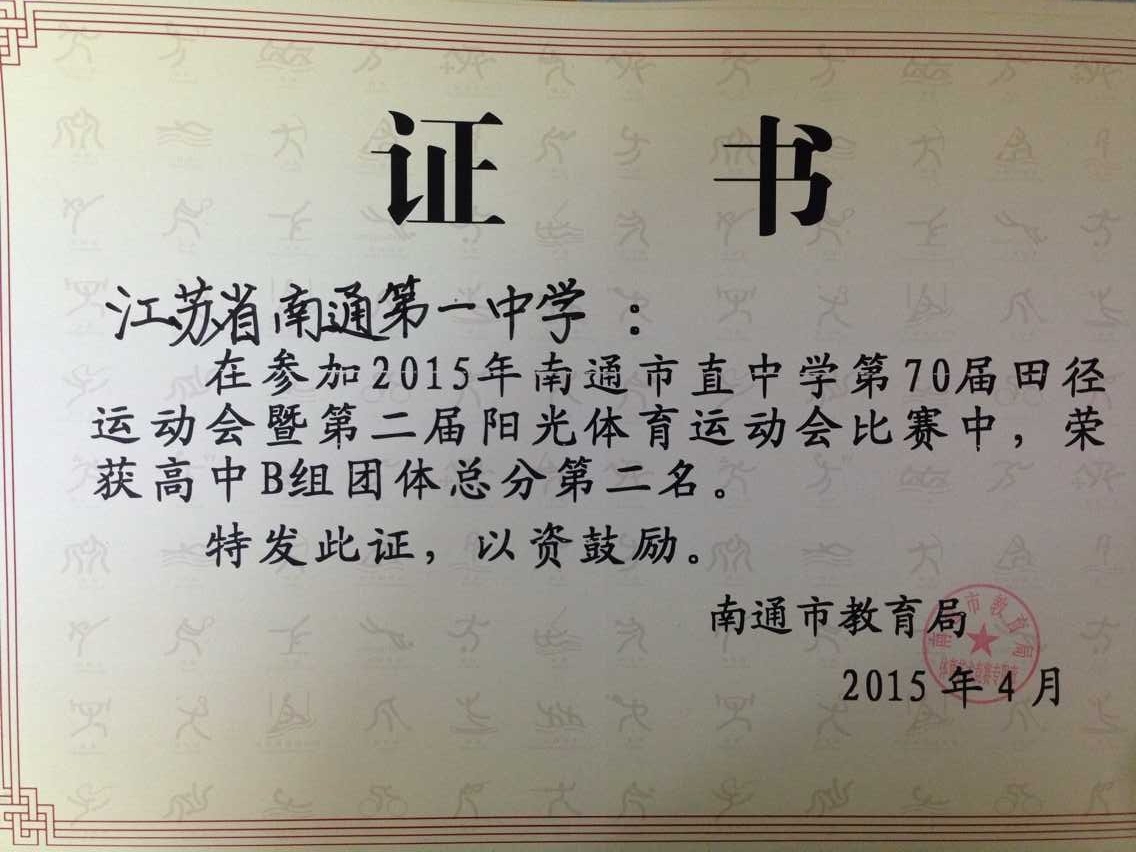 证书
江苏省南通第一中学：
在参加2015年南通市直中学第70届田径
运动会暨第二届阳光体育运动会比赛中，荣
获高中B组团体总分第二名。
特发此证，以资鼓励。
南通市教育局
2015年4月
南通市教育局